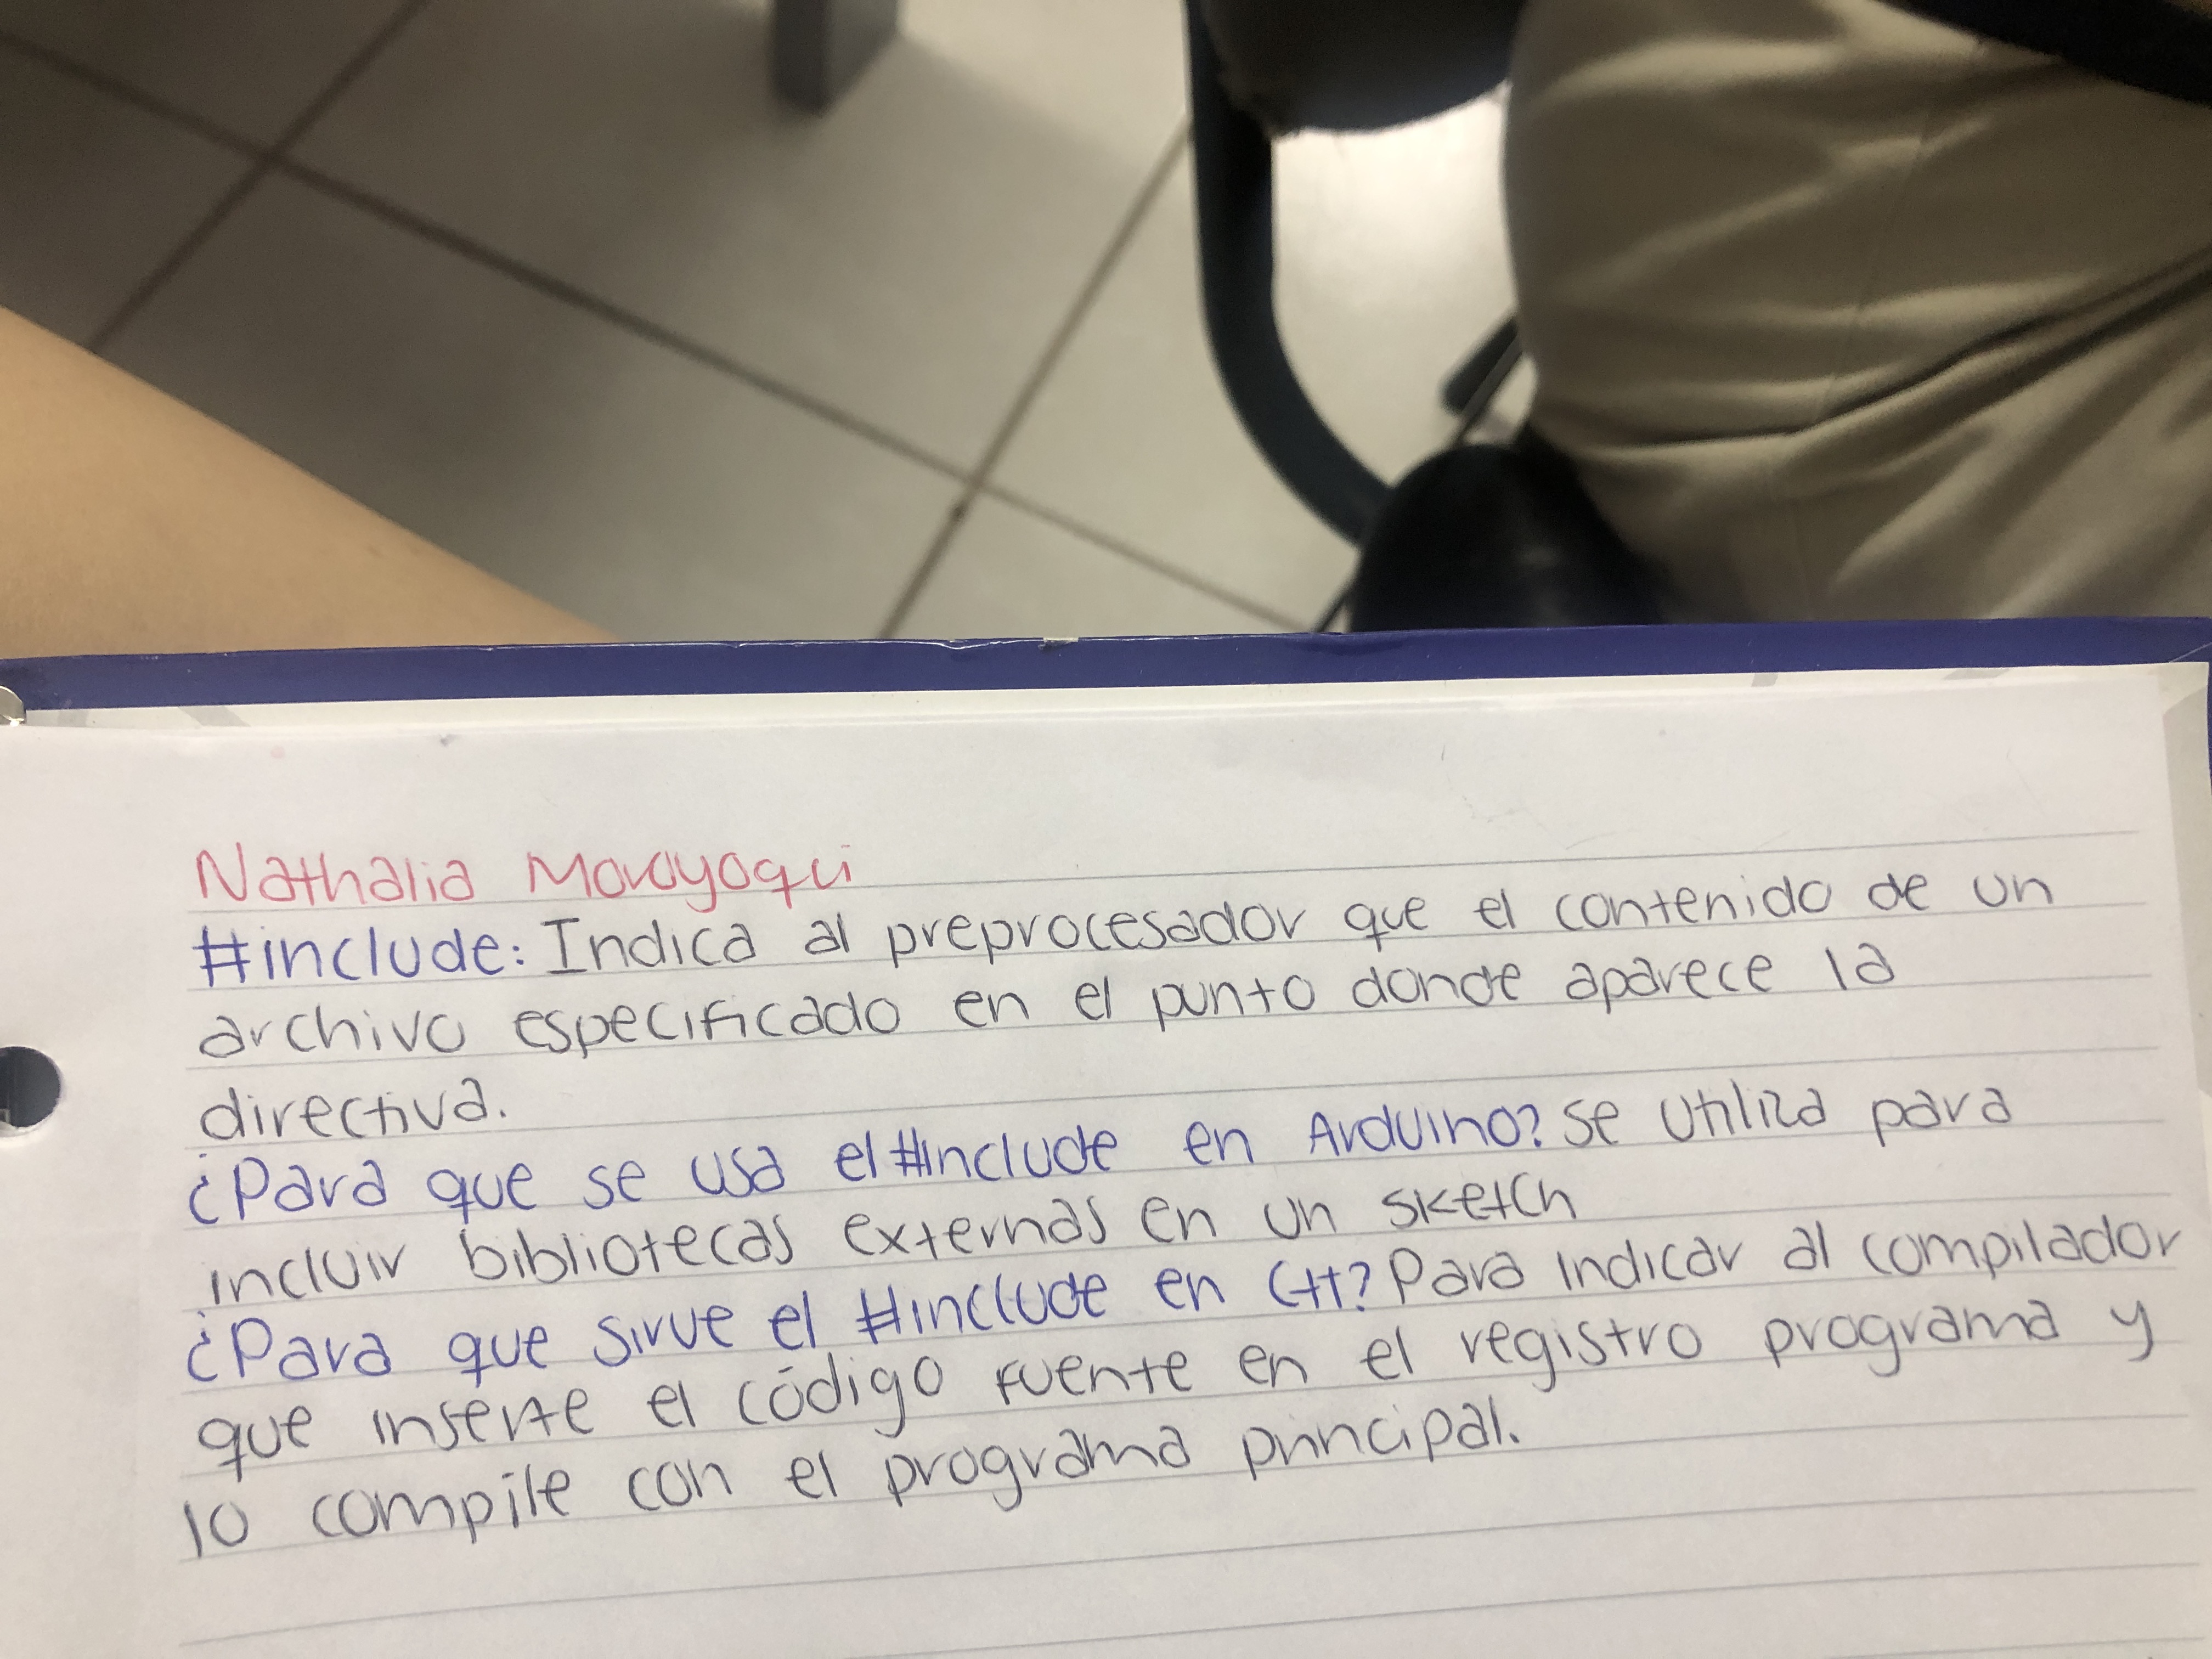 Nathalia Moroyoqui
#include: Indica al preprocesador que el contenido de un
archivo especificado en el punto donde aparece la
directiva.
¿Para que se usa el #include en Arduino? Se utiliza para
incluir bibliotecas externas en un sketch
¿Para que sirve el #include en C++? Para indicar al compilador
que inserte el código fuente en el registro programa y
lo compile con el programa principal.